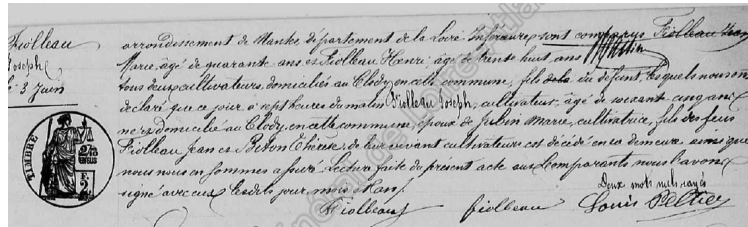 Fiolleau
Joseph
le 3 Juin
arrondissement de Nantes, département de la Loire Inférieure, sont comparus Fiolleau Jean
Marie, âgé de quarante ans et Fiolleau Henri, âgé de trente huit ans
tous deux cultivateurs, domiciliés au Clody, en cette commune, fils du défunt, lesquels nous ont
déclaré que ce jour à sept heures du matin Fiolleau Joseph, cultivateur, âgé de soixante cinq ans
né et domicilié au Clody, en cette commune, époux de Jubin Marie, cultivatrice, fils des feus
Fiolleau Jean et Béton Thérèse, de leur vivant cultivateurs est décédé en sa demeure, ainsi que
nous nous en sommes assuré. Lecture faite du présent acte aux comparants nous l'avons
signé avec eux lesdits jour, mois et an.
Deux mots nuls rayés
Fiolleau J fiolleau Louis Peltier
TIMBRE